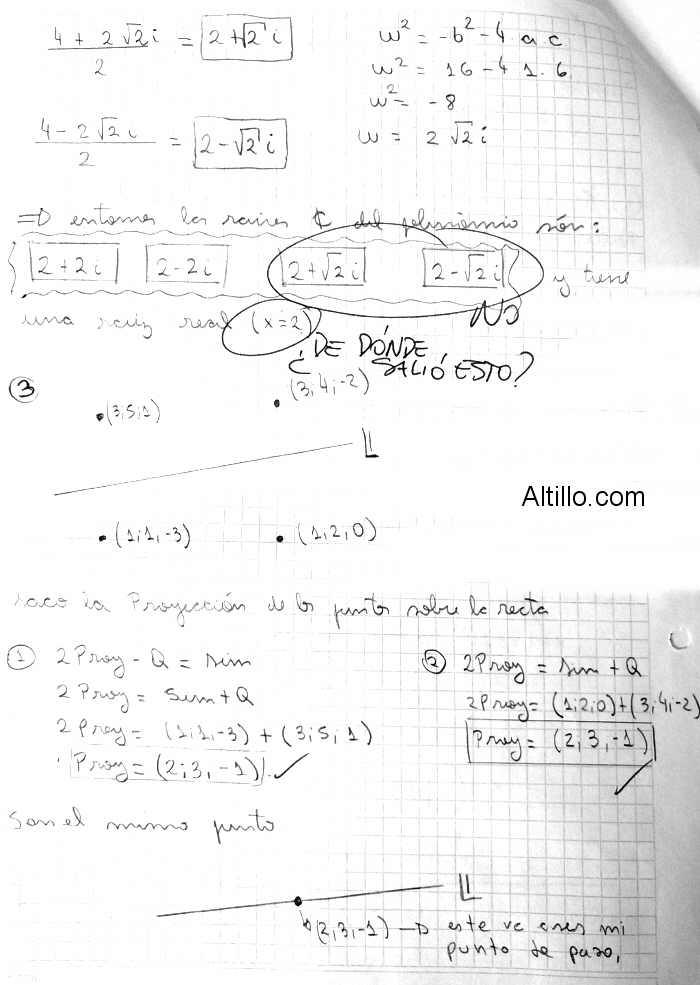 4 + 2√2 i / 2 = 2+√2 i
w² = -b² - 4 . a . c
w² = 16 - 4 1 . 6
w² = -8
4 - 2√2 i / 2 = 2 - √2 i
w = 2 √2 i
=D entonces las raices ℂ del polinomio són:
2+2i 2-2i 2+√2i 2-√2i y tiene
una raiz real (x=2) NO
¿DE DÓNDE
SALIÓ ESTO?
③ (3;5;1) (3;4;-2)
𝕃
Altillo.com
(1;1,-3) (1,2,0)
saco la Proyección de los puntos sobre la recta
① 2Proy - Q = sim
2 Proy = sim + Q
2 Proy = (1;1,-3) + (3;5,1)
Proy = (2;3,-1)
② 2Proy = sim + Q
2Proy = (1;2;0)+(3,4,-2)
Proy = (2,3,-1)
Son el mismo punto
𝕃
(2,3,-1) —D este va a ser mi
punto de paso,